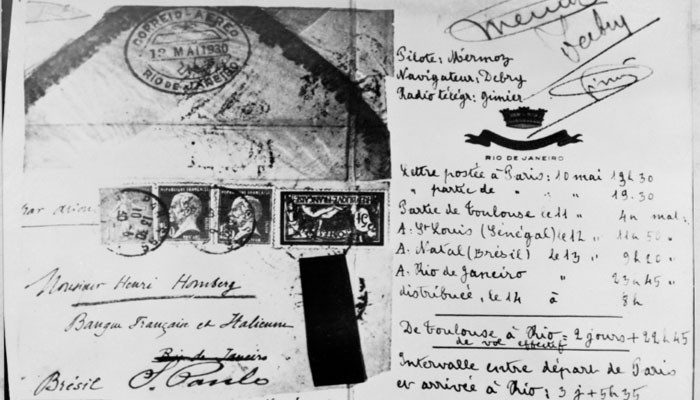 CORREIO-AEREO
12 MAI 1930
RIO DE JANEIRO
par avion
REPUBLIQUE FRANÇAISE
Monsieur Henri Homberg
Banque Française et Italienne
Rio de Janeiro
Brésil S. Paulo
Debry
Gimié
Pilote: Mermoz
Navigateur: Debry
Radio télégr: Gimier
RIO DE JANEIRO
Lettre postée à Paris: 10 mai 19h30
" partie de " " " 19.30
Partie de Toulouse le 11 " 4h mat:
A. St Louis (Sénégal) le 12 " 11h50 "
A. Natal (Brésil) le 13 " 9h20 "
A. Rio de Janeiro " 23h45 "
distribuée, le 14 à 8h
De Toulouse à Rio = 2 jours + 22h45
de vol effectif
Intervalle entre départ de Paris
et arrivée à Rio: 3 j + 5h35